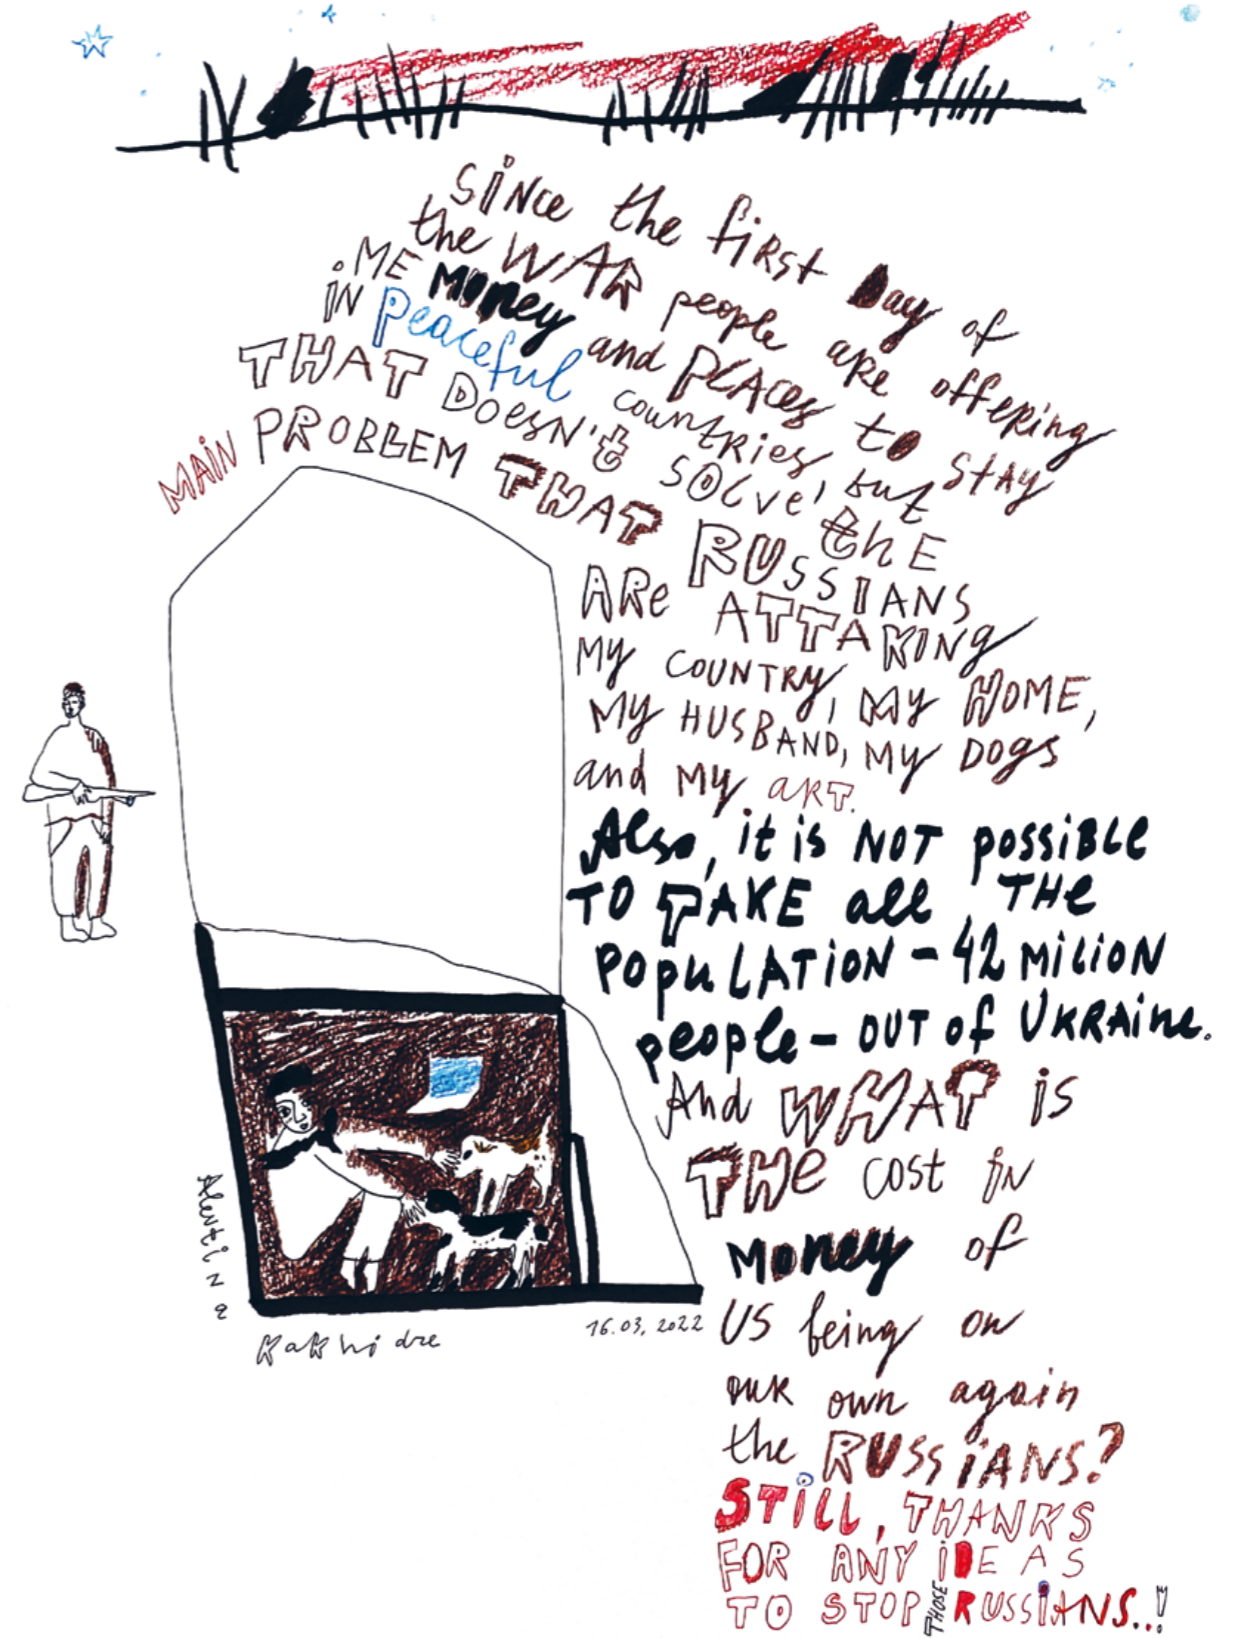 SiNce the first Day of
the WAR people are offering
ME Money and PLAces to stay
iN peaceful countries, but
THAT DOesN't SOLve the
MAiN PROBLEM THAT RUSSIANS
ARe ATTAKiNg
My COUNTRY, My HOME,
My HUSBAND, My DOgs
and My ART.
Also, it is NOT possiBLe
TO TAKE all THe
POpuLATiON – 42 MiLiON
people – OUT of UKRAiNe.
And WHAT is
THe cost iN
Money of
US being on
our own again
the RUSSiANS?
STiLL, THANKS
FOR ANY iDEAS
TO STOP THOSE RUSSiANS..!
Alevtina
Kakhidze
16.03.2022